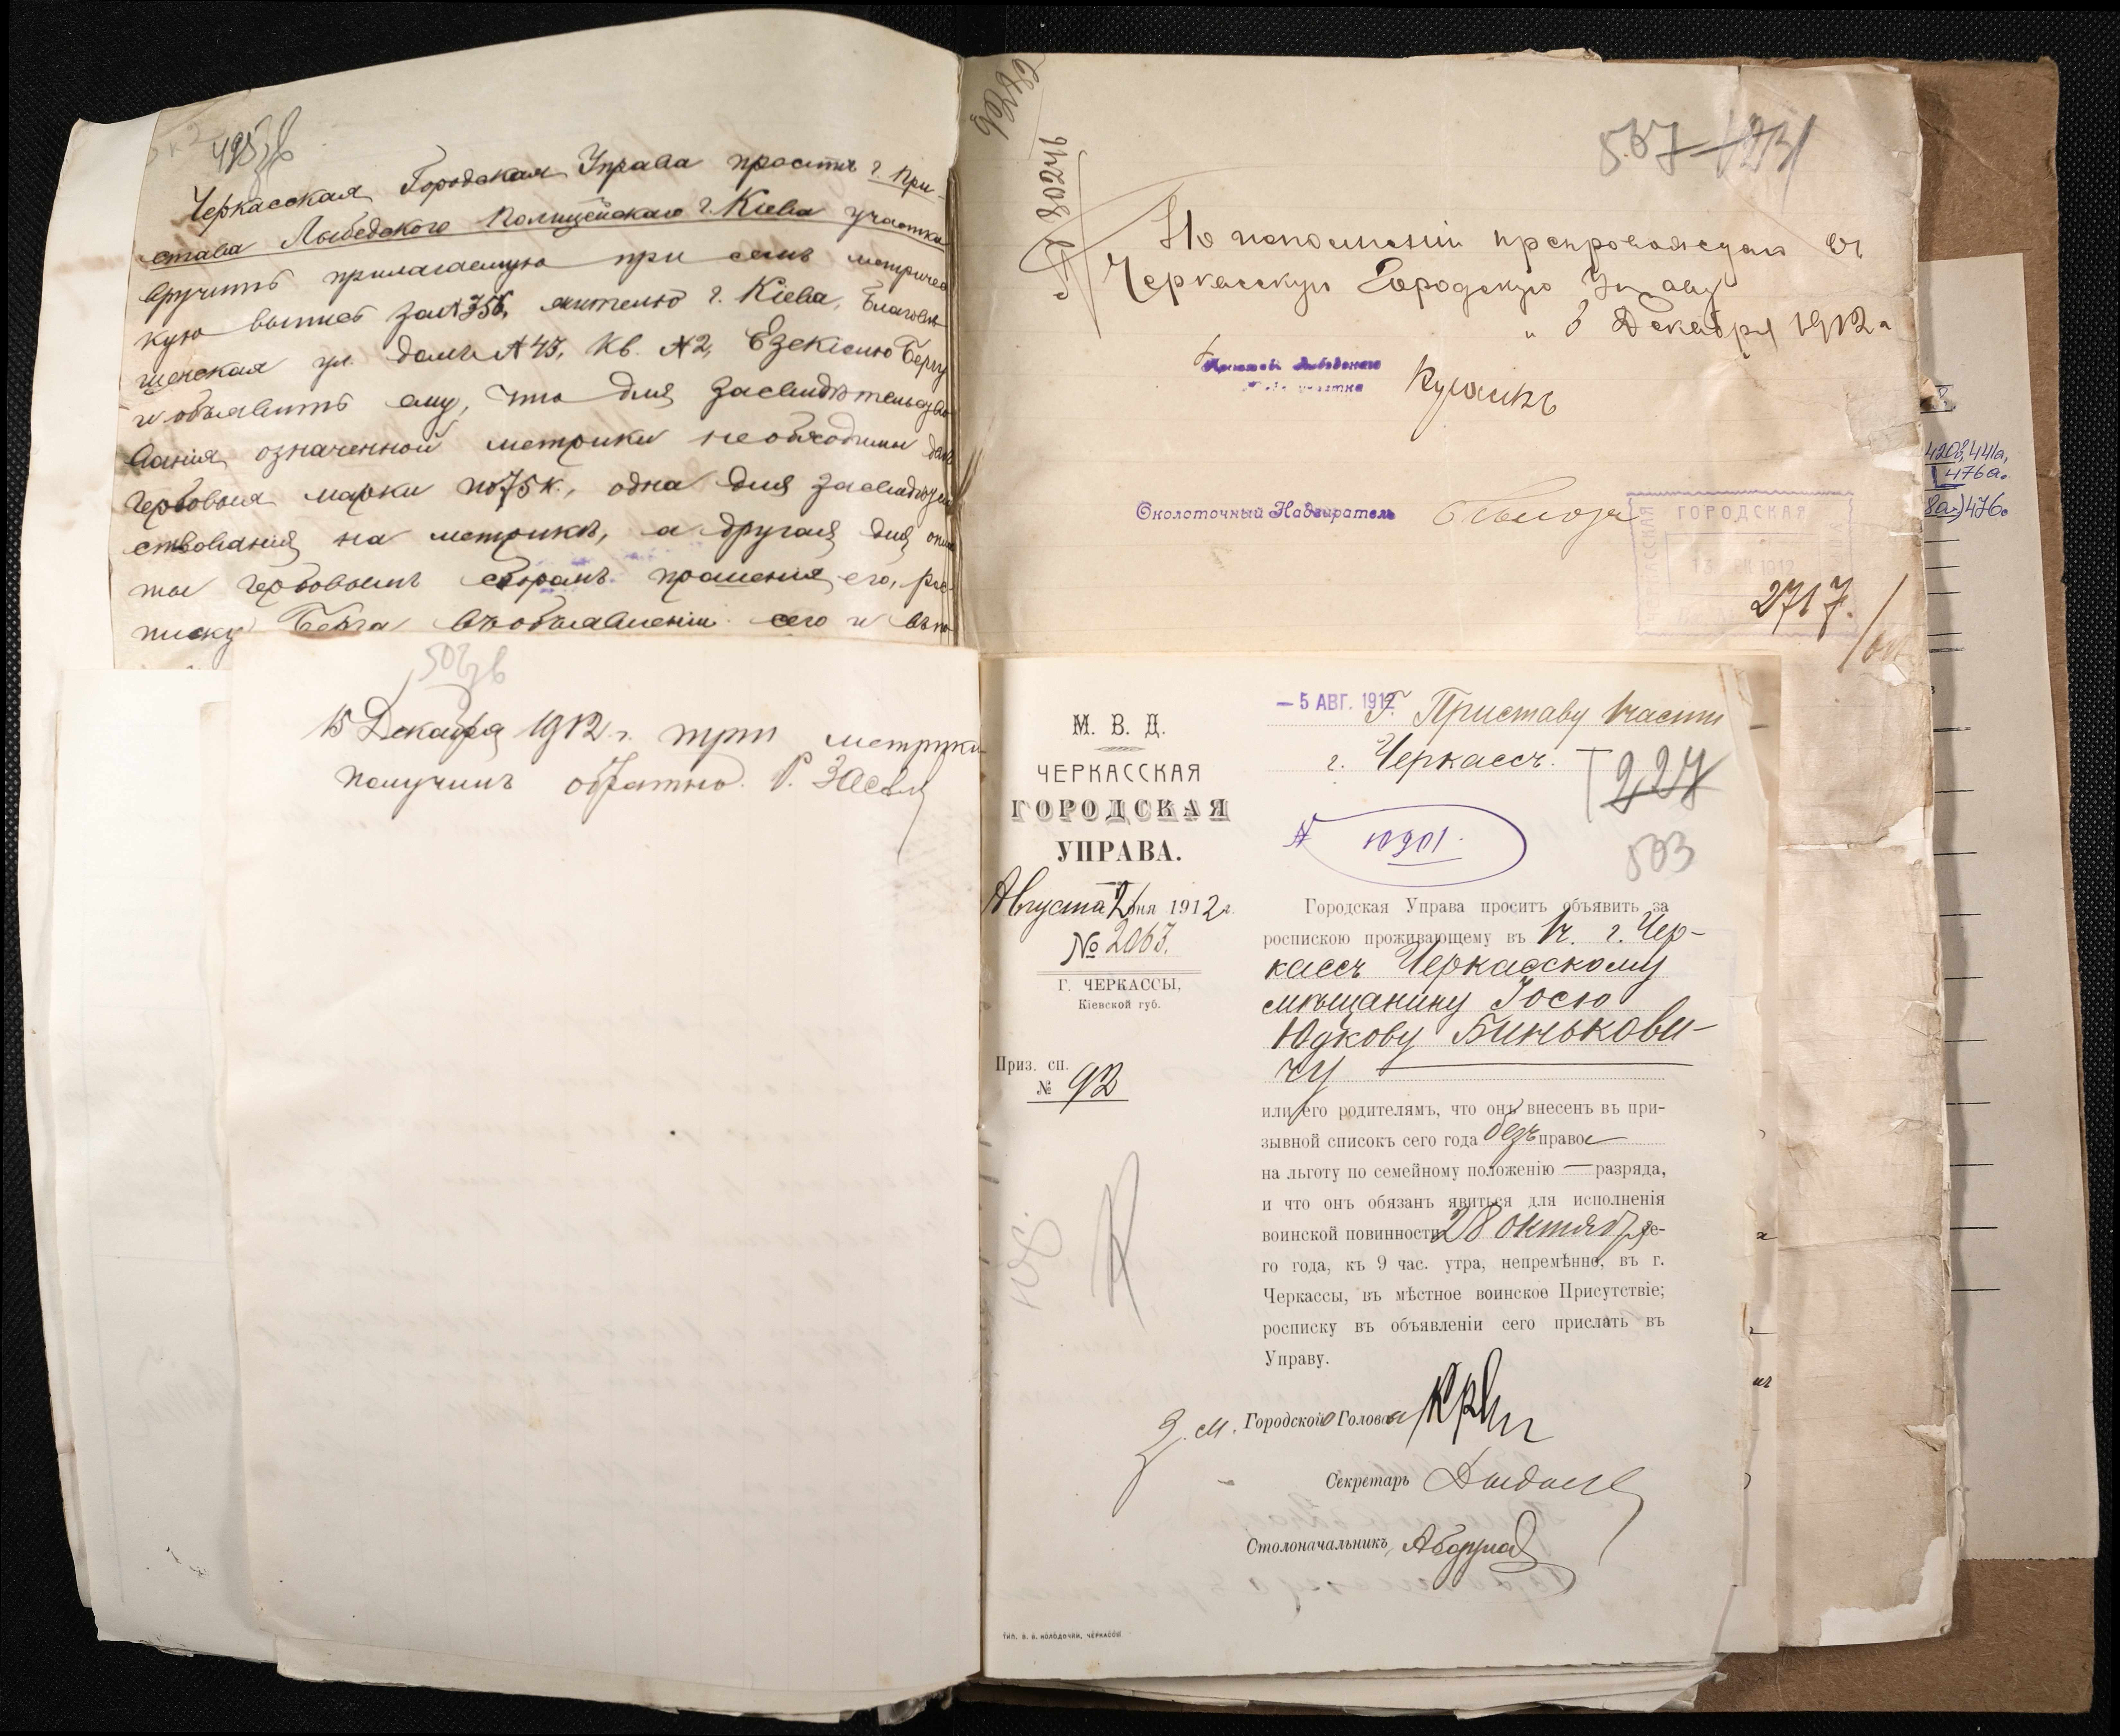 Черкасская Городская Управа проситъ г. При-
става Лыбедского Полицейскаго г. Кіева участка
вручить прилагаемую при семъ метричес
кую выпись за № 756, жителю г. Кіева, Благовѣ
щенская ул. домъ № 43, кв. № 2, Езекіелю Бергу
и объявить ему, что для засвидѣтельство
ванія означенной метрики необходимы двѣ
гербовыя марки по 75 к., одна для засвидѣтель
ствованія на метрикѣ, а другая для опла
ты гербовымъ сборомъ прошенія его, рос
писку Берга въ объявленіи сего и въ по
80246
507
По исполненіи препровождаю въ
Черкасскую Городскую Управу
" 8 Декабря 1912 г
Приставъ Лыбедского
участка
Околоточный Надзиратель
ГОРОДСКАЯ
1912
2717.
420, 441а,
476а.
476
15 Декабря 1912 г. три метрики
получилъ обратно.
М. В. Д.
ЧЕРКАССКАЯ
ГОРОДСКАЯ
УПРАВА.
Августа 2 дня 1912 г.
№ 2063.
Г. ЧЕРКАССЫ,
Кіевской губ.
Приз. сп.
№ 92
— 5 АВГ. 1912
Г. Приставу 1 части
г. Черкассъ.
227
№ 10901.
503
Городская Управа проситъ объявить за
роспискою проживающему въ 1 ч. г. Чер-
кассъ Черкасскому
мѣщанину Іосю
Юдкову Бинькови-
чу
или его родителямъ, что онъ внесенъ въ при-
зывной списокъ сего года безъ права
на льготу по семейному положенію — разряда,
и что онъ обязанъ явиться для исполненія
воинской повинности 28 октября се-
го года, къ 9 час. утра, непремѣнно, въ г.
Черкассы, въ мѣстное воинское Присутствіе;
росписку въ объявленіи сего прислать въ
Управу.
З. м. Городского Головы
Секретарь
Столоначальникъ
ТИП. В. В. КОЛОДОЧКИ, ЧЕРКАССЫ